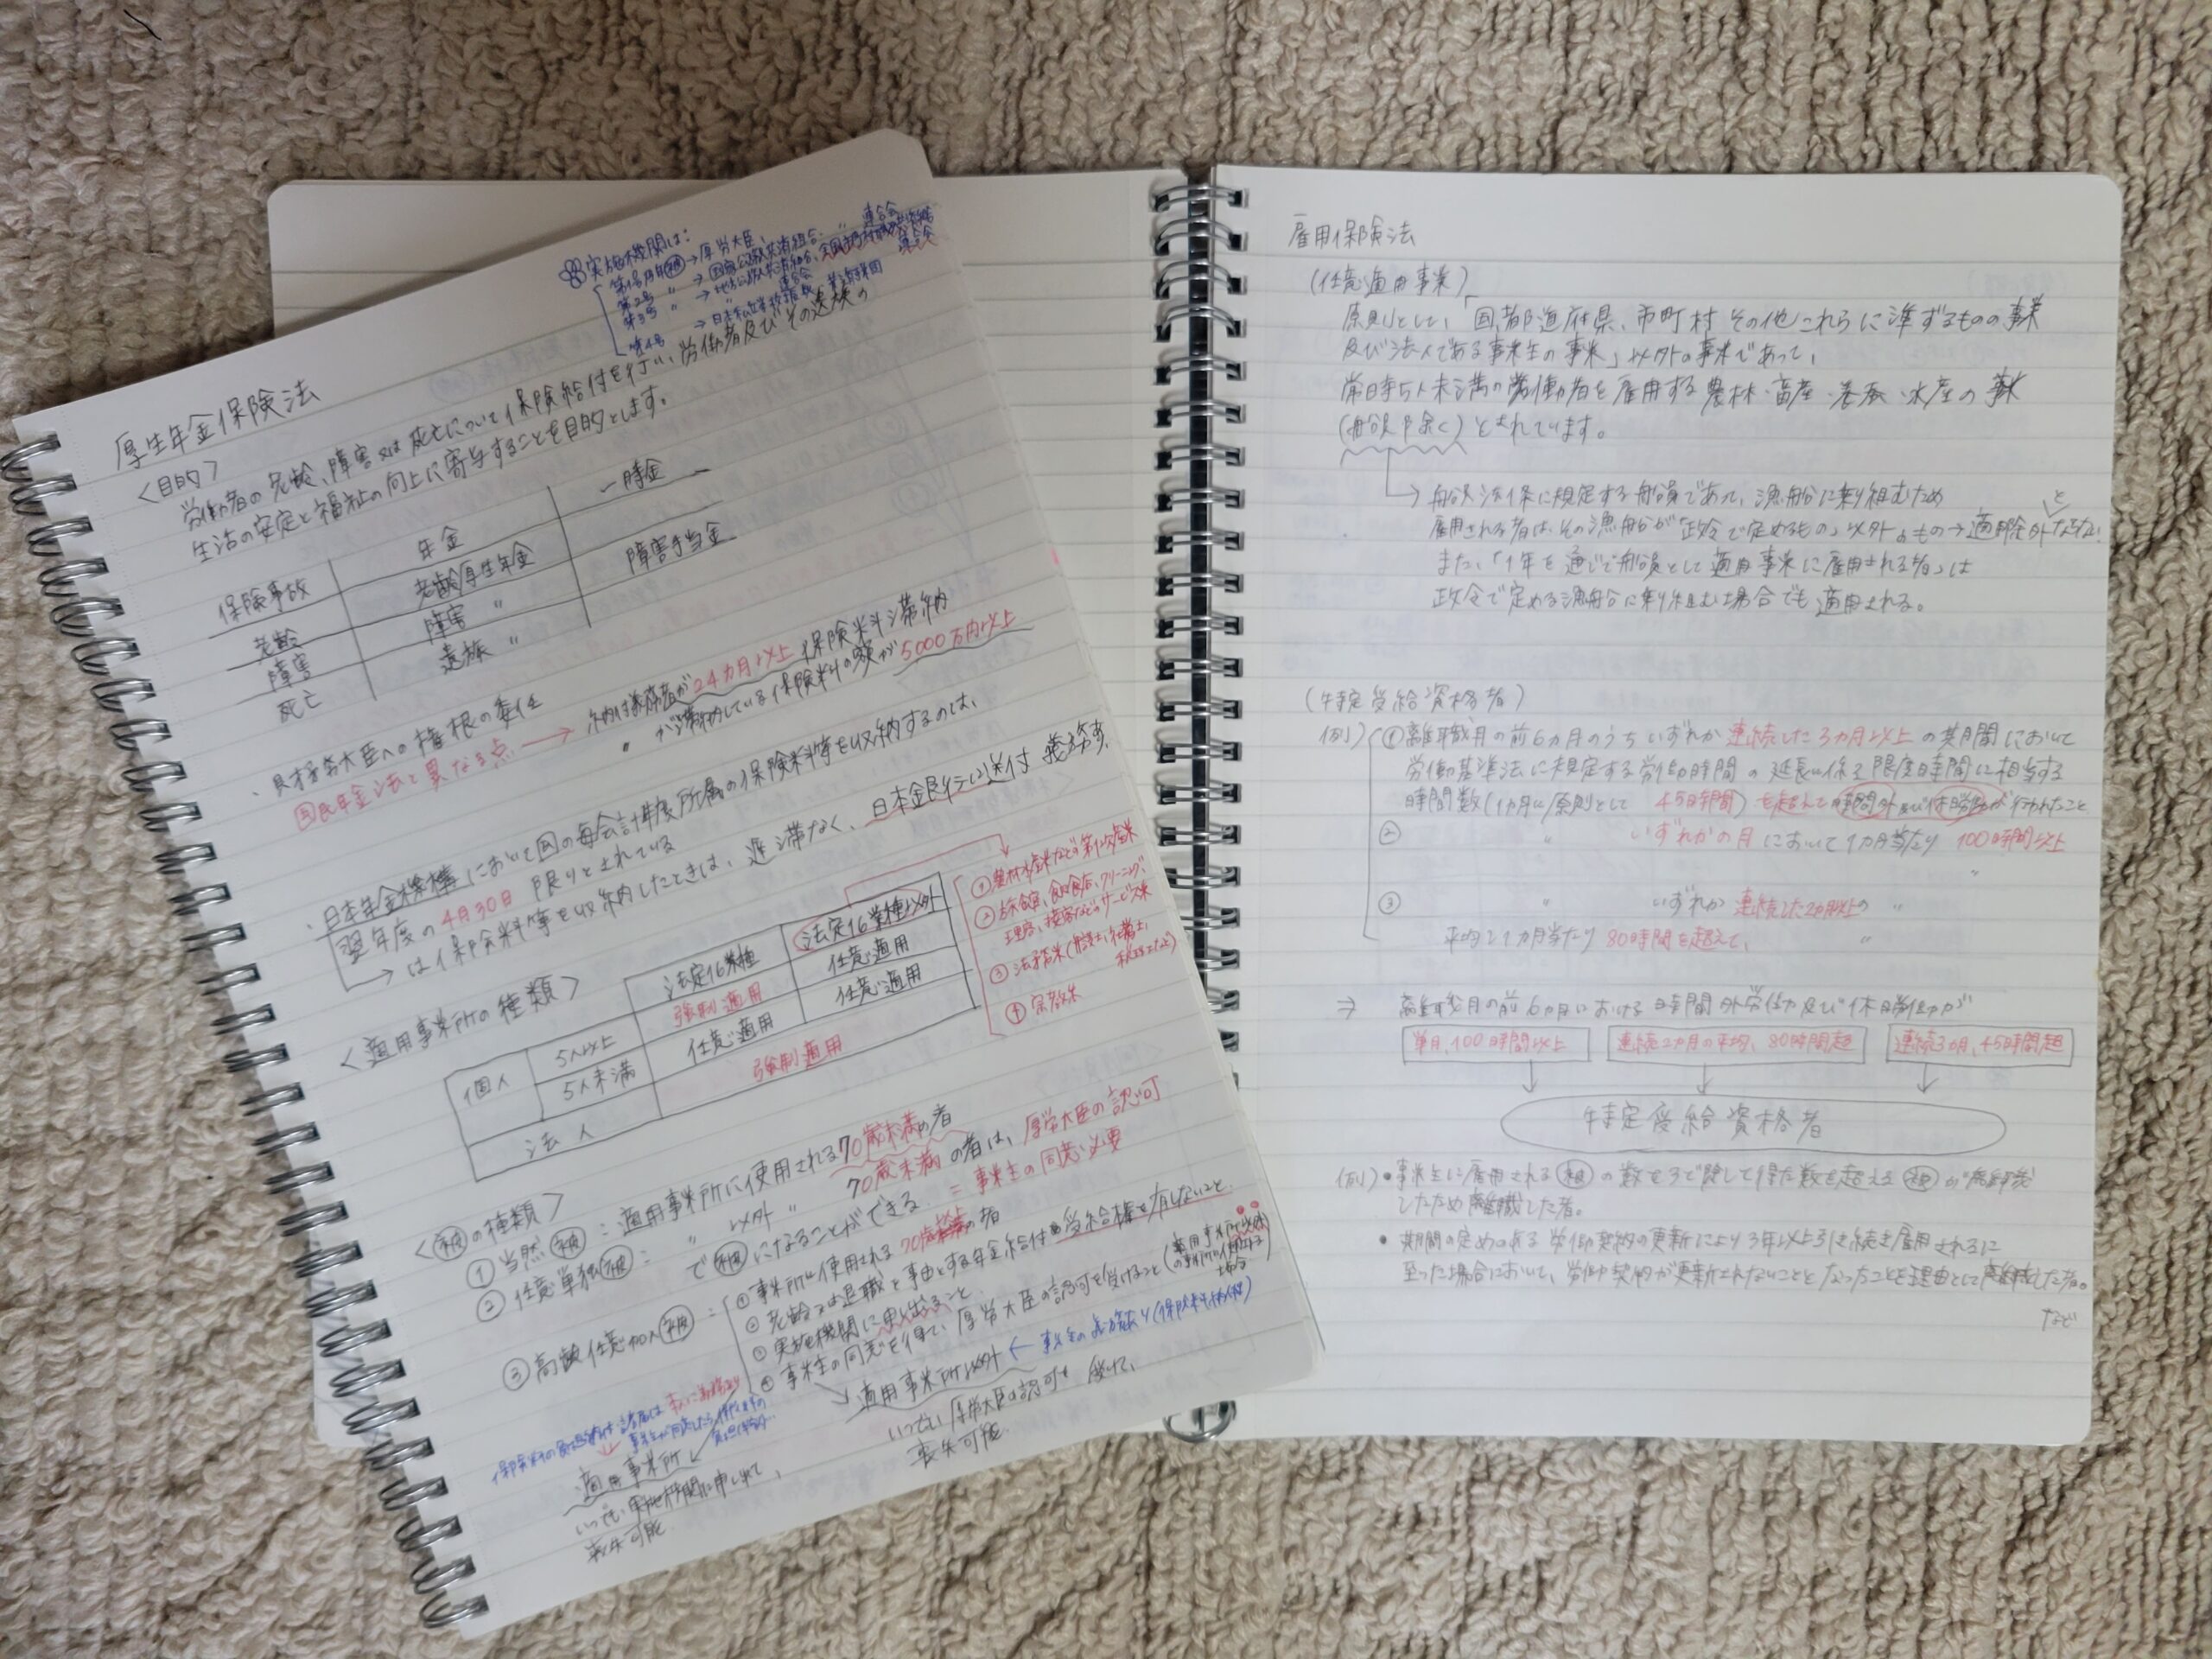 厚生年金保険法
実施機関は:
第1号厚年被→厚労大臣、
第2号 〃 →国家公務員共済組合、〃 連合会
第3号 〃 →地方公務員共済組合、全国市町村職員共済組合連合会
第4号 →日本私立学校振興・共済事業団
<目的>
労働者の老齢、障害又は死亡について保険給付を行い、労働者及びその遺族の
生活の安定と福祉の向上に寄与することを目的とします。
保険事故 年金 一時金
老齢 老齢厚生年金
障害 障害 〃 障害手当金
死亡 遺族 〃
・財務大臣への権限の委任
国民年金法と異なる点 → 納付義務者が24カ月以上保険料滞納
〃 が滞納している保険料の額が5000万円以上
・日本年金機構において国の毎会計年度所属の保険料等を収納するのは、
翌年度の4月30日限りとされている
→は保険料等を収納したときは、遅滞なく、日本銀行に送付 義務あり
<適用事業所の種類>
法定16業種 法定16業種以外
個人 5人以上 強制適用 任意適用
5人未満 任意適用 任意適用
法人 強制適用
①農林水産業などの第1次産業
②旅館、飲食店、クリーニング、
理容、接客などのサービス業
③法務業(弁護士、社労士、
税理士など)
④宗教業
<被の種類>
①当然被:適用事業所に使用される70歳未満の者
②任意単独被: 〃 以外 〃 70歳未満の者は、厚労大臣の認可
で被になることができる。=事業主の同意必要
③高齢任意加入被:
①事業所に使用される70歳以上の者
②老齢又は退職を事由とする年金給付の受給権を有しないこと
③実施機関に申し出ること
④事業主の同意を得て、厚労大臣の認可を受けること(適用事業所以外の事業所に使用される場合)
適用事業所以外 ← 事業主の義務あり(保険料半額)
いつでも厚労大臣の認可を受けて、
喪失可能。
適用事業所
いつでも実施機関に申し出て、
喪失可能。
雇用保険法
(任意適用事業)
原則として、「国、都道府県、市町村その他これらに準ずるものの事業
及び法人である事業主の事業」以外の事業であって、
常時5人未満の労働者を雇用する農林・畜産・養蚕・水産の事業
(船員除く)とされています。
→船員法1条に規定する船員であって、漁船に乗り組むため
雇用される者は、その漁船が「政令で定めるもの」以外のもの→適用除外とならない
また、「1年を通じて船員として適用事業に雇用される者」は
政令で定める漁船に乗り組む場合でも適用される。
(特定受給資格者)
例)①離職月の前6カ月のうちいずれか連続した3カ月以上の期間において
労働基準法に規定する労働時間の延長に係る限度時間に相当する
時間数(1カ月に原則として 45時間)を超えて時間外及び休日労働が行われたこと
② 〃 いずれかの月において1カ月当たり 100時間以上
〃
③ 〃 いずれか連続した2カ月以上の 〃
平均で1カ月当たり 80時間を超えて、 〃
⇒ 離職月の前6カ月における時間外労働及び休日労働が
単月、100時間以上
連続2カ月の平均、80時間超
連続3カ月、45時間超
特定受給資格者
例)・事業主に雇用される被の数を3で除して得た数を超える被が離職
したため離職した者。
・期間の定めのある労働契約の更新により3年以上引き続き雇用されるに
至った場合において、労働契約が更新されないこととなったことを理由として離職した者。
など